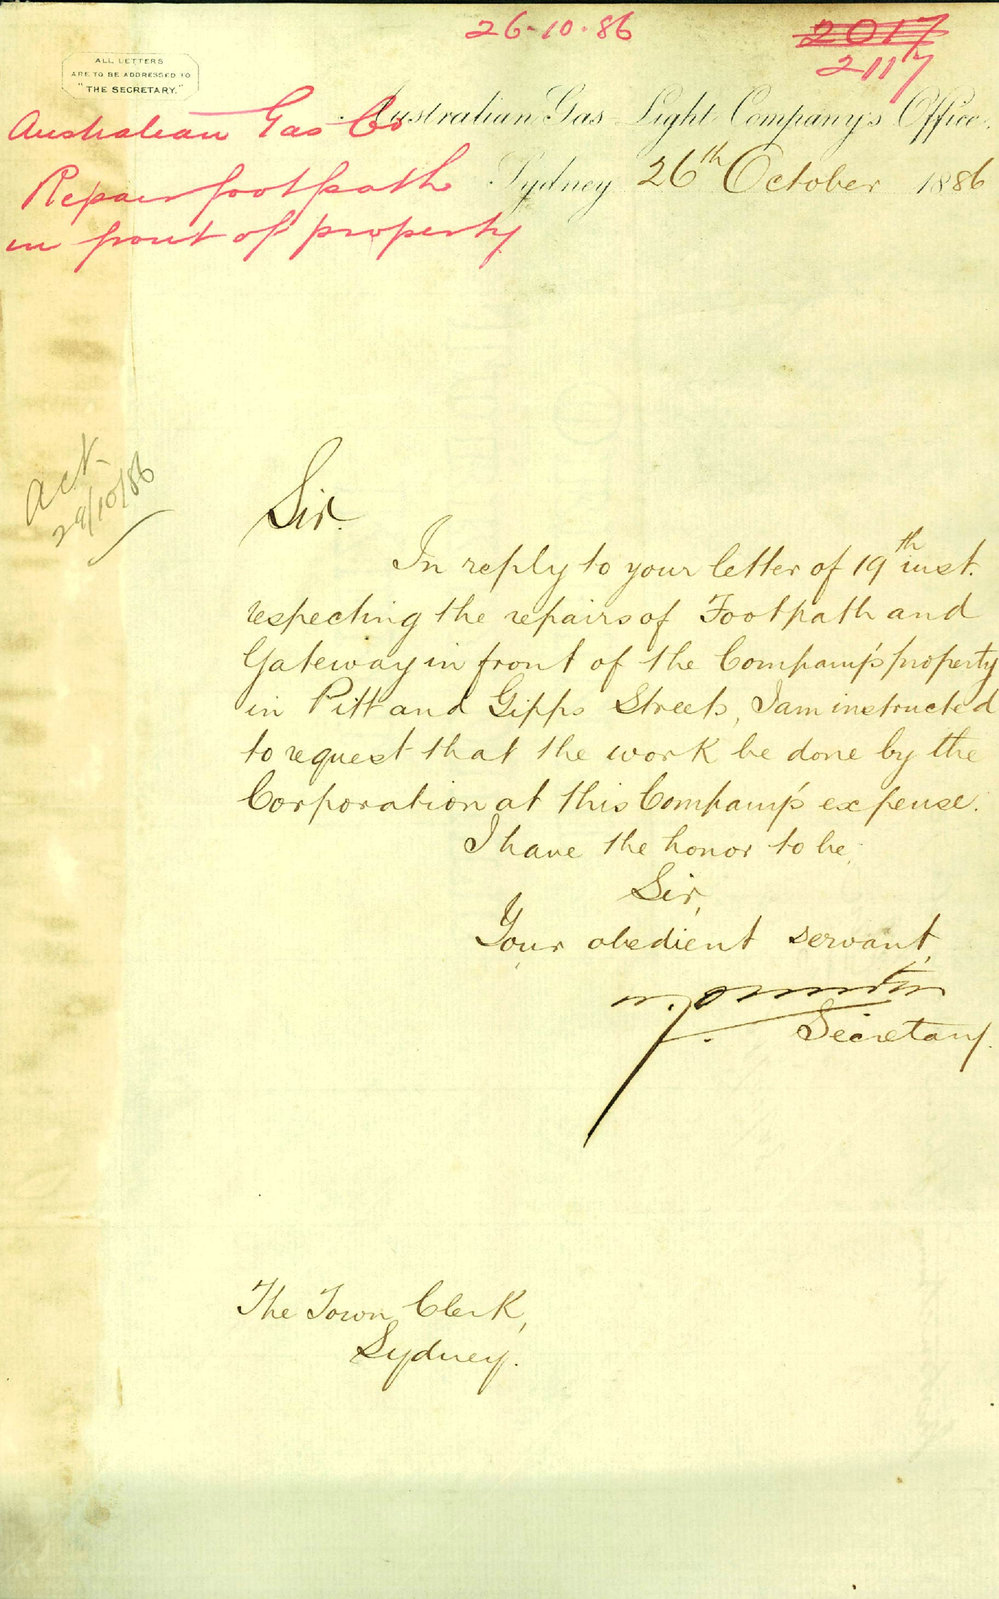 26-10-86
2017
2117
ALL LETTERS
ARE TO BE ADDRESSED TO
"THE SECRETARY."
Australian Gas Co
Repair footpath
in front of property
Australian Gas Light Company's Office.
Sydney 26th October 1886
Act
29/10/86
Sir.
In reply to your letter of 19th inst.
respecting the repairs of Footpath and
Gateway in front of the Company's property
in Pitt and Gipps Streets, I am instructed
to request that the work be done by the
Corporation at this Company's expense.
I have the honor to be,
Sir,
Your obedient servant,
Secretary.
The Town Clerk,
Sydney.